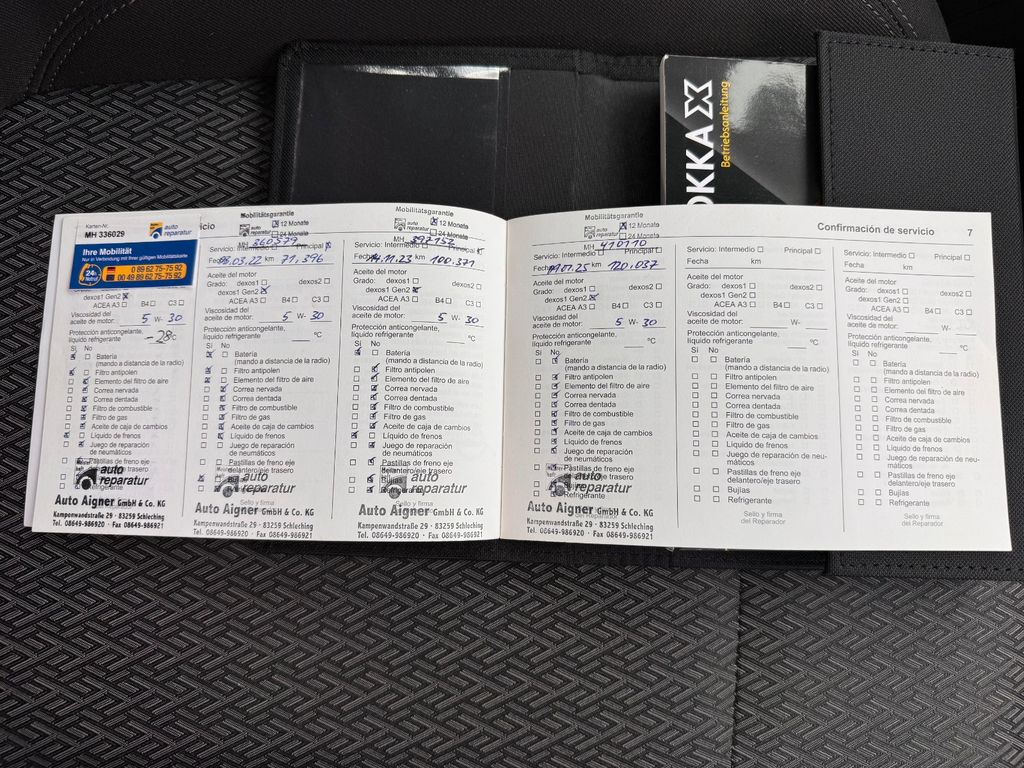 OKKA X
Betriebsanleitung
Karten-Nr.
MH 336029
auto
reparatur
Ihre Mobilität
Nur in Verbindung mit Ihrer gültigen Mobilitätskarte
24h
Notruf
0 89 62 75-75 92
00 49 89 62 75-75 92
dexos1 Gen2
ACEA A3 B4 C3
Viscosidad del
aceite de motor: 5 W- 30
Protección anticongelante,
líquido refrigerante -28°C
Sí No
Batería
(mando a distancia de la radio)
Filtro antipolen
Elemento del filtro de aire
Correa nervada
Correa dentada
Filtro de combustible
Filtro de gas
Aceite de caja de cambios
Líquido de frenos
Juego de reparación
de neumáticos
Pastillas de freno eje
auto
reparatur
Auto Aigner GmbH & Co. KG
Kampenwandstraße 29 · 83259 Schleching
Tel. 08649-986920 · Fax 08649-986921
Mobilitätsgarantie
auto
reparatur
12 Monate
24 Monate
MH 360579
Servicio: Intermedio Principal
Fecha 03.22 km 71.396
Aceite del motor
Grado: dexos1 dexos2
dexos1 Gen2
ACEA A3 B4 C3
Viscosidad del
aceite de motor: 5 W- 30
Protección anticongelante,
líquido refrigerante °C
Sí No
Batería
(mando a distancia de la radio)
Filtro antipolen
Elemento del filtro de aire
Correa nervada
Correa dentada
Filtro de combustible
Filtro de gas
Aceite de caja de cambios
Líquido de frenos
Juego de reparación
de neumáticos
Pastillas de freno eje
delantero/eje trasero
auto
reparatur
Sello y firma
Auto Aigner GmbH & Co. KG
Kampenwandstraße 29 · 83259 Schleching
Tel. 08649-986920 · Fax 08649-986921
Mobilitätsgarantie
auto
reparatur
12 Monate
24 Monate
MH 397152
Servicio: Intermedio Principal
Fecha 14.11.23 km 100.371
Aceite del motor
Grado: dexos1 dexos2
dexos1 Gen2
ACEA A3 B4 C3
Viscosidad del
aceite de motor: 5 W- 30
Protección anticongelante,
líquido refrigerante °C
Sí No
Batería
(mando a distancia de la radio)
Filtro antipolen
Elemento del filtro de aire
Correa nervada
Correa dentada
Filtro de combustible
Filtro de gas
Aceite de caja de cambios
Líquido de frenos
Juego de reparación
de neumáticos
Pastillas de freno eje
delantero/eje trasero
auto
reparatur
Sello y firma
Auto Aigner GmbH & Co. KG
Kampenwandstraße 29 · 83259 Schleching
Tel. 08649-986920 · Fax 08649-986921
Mobilitätsgarantie
auto
reparatur
12 Monate
24 Monate
MH 410110
Servicio: Intermedio Principal
Fecha 01.25 km 120.037
Aceite del motor
Grado: dexos1 dexos2
dexos1 Gen2
ACEA A3 B4 C3
Viscosidad del
aceite de motor: 5 W- 30
Protección anticongelante,
líquido refrigerante °C
Sí No
Batería
(mando a distancia de la radio)
Filtro antipolen
Elemento del filtro de aire
Correa nervada
Correa dentada
Filtro de combustible
Filtro de gas
Aceite de caja de cambios
Líquido de frenos
Juego de reparación
de neumáticos
Pastillas de freno eje
delantero/eje trasero
auto
reparatur
Refrigerante
Auto Aigner GmbH & Co. KG
Kampenwandstraße 29 · 83259 Schleching
Tel. 08649-986920 · Fax 08649-986921
Confirmación de servicio 7
Servicio: Intermedio Principal
Fecha km
Aceite del motor
Grado: dexos1 dexos2
dexos1 Gen2
ACEA A3 B4 C3
Viscosidad del
aceite de motor: W-
Protección anticongelante,
líquido refrigerante °C
Sí No
Batería
(mando a distancia de la radio)
Filtro antipolen
Elemento del filtro de aire
Correa nervada
Correa dentada
Filtro de combustible
Filtro de gas
Aceite de caja de cambios
Líquido de frenos
Juego de reparación de neu-
máticos
Pastillas de freno eje
delantero/eje trasero
Bujías
Refrigerante
Sello y firma
del Reparador
Servicio: Intermedio Principal
Fecha km
Aceite del motor
Grado: dexos1 dexos2
dexos1 Gen2
ACEA A3 B4 C3
Viscosidad del
aceite de motor: W-
Protección anticongelante,
líquido refrigerante °C
Sí No
Batería
(mando a distancia de la radio)
Filtro antipolen
Elemento del filtro de aire
Correa nervada
Correa dentada
Filtro de combustible
Filtro de gas
Aceite de caja de cambios
Líquido de frenos
Juego de reparación de neu-
máticos
Pastillas de freno eje
delantero/eje trasero
Bujías
Refrigerante
Sello y firma
del Reparador